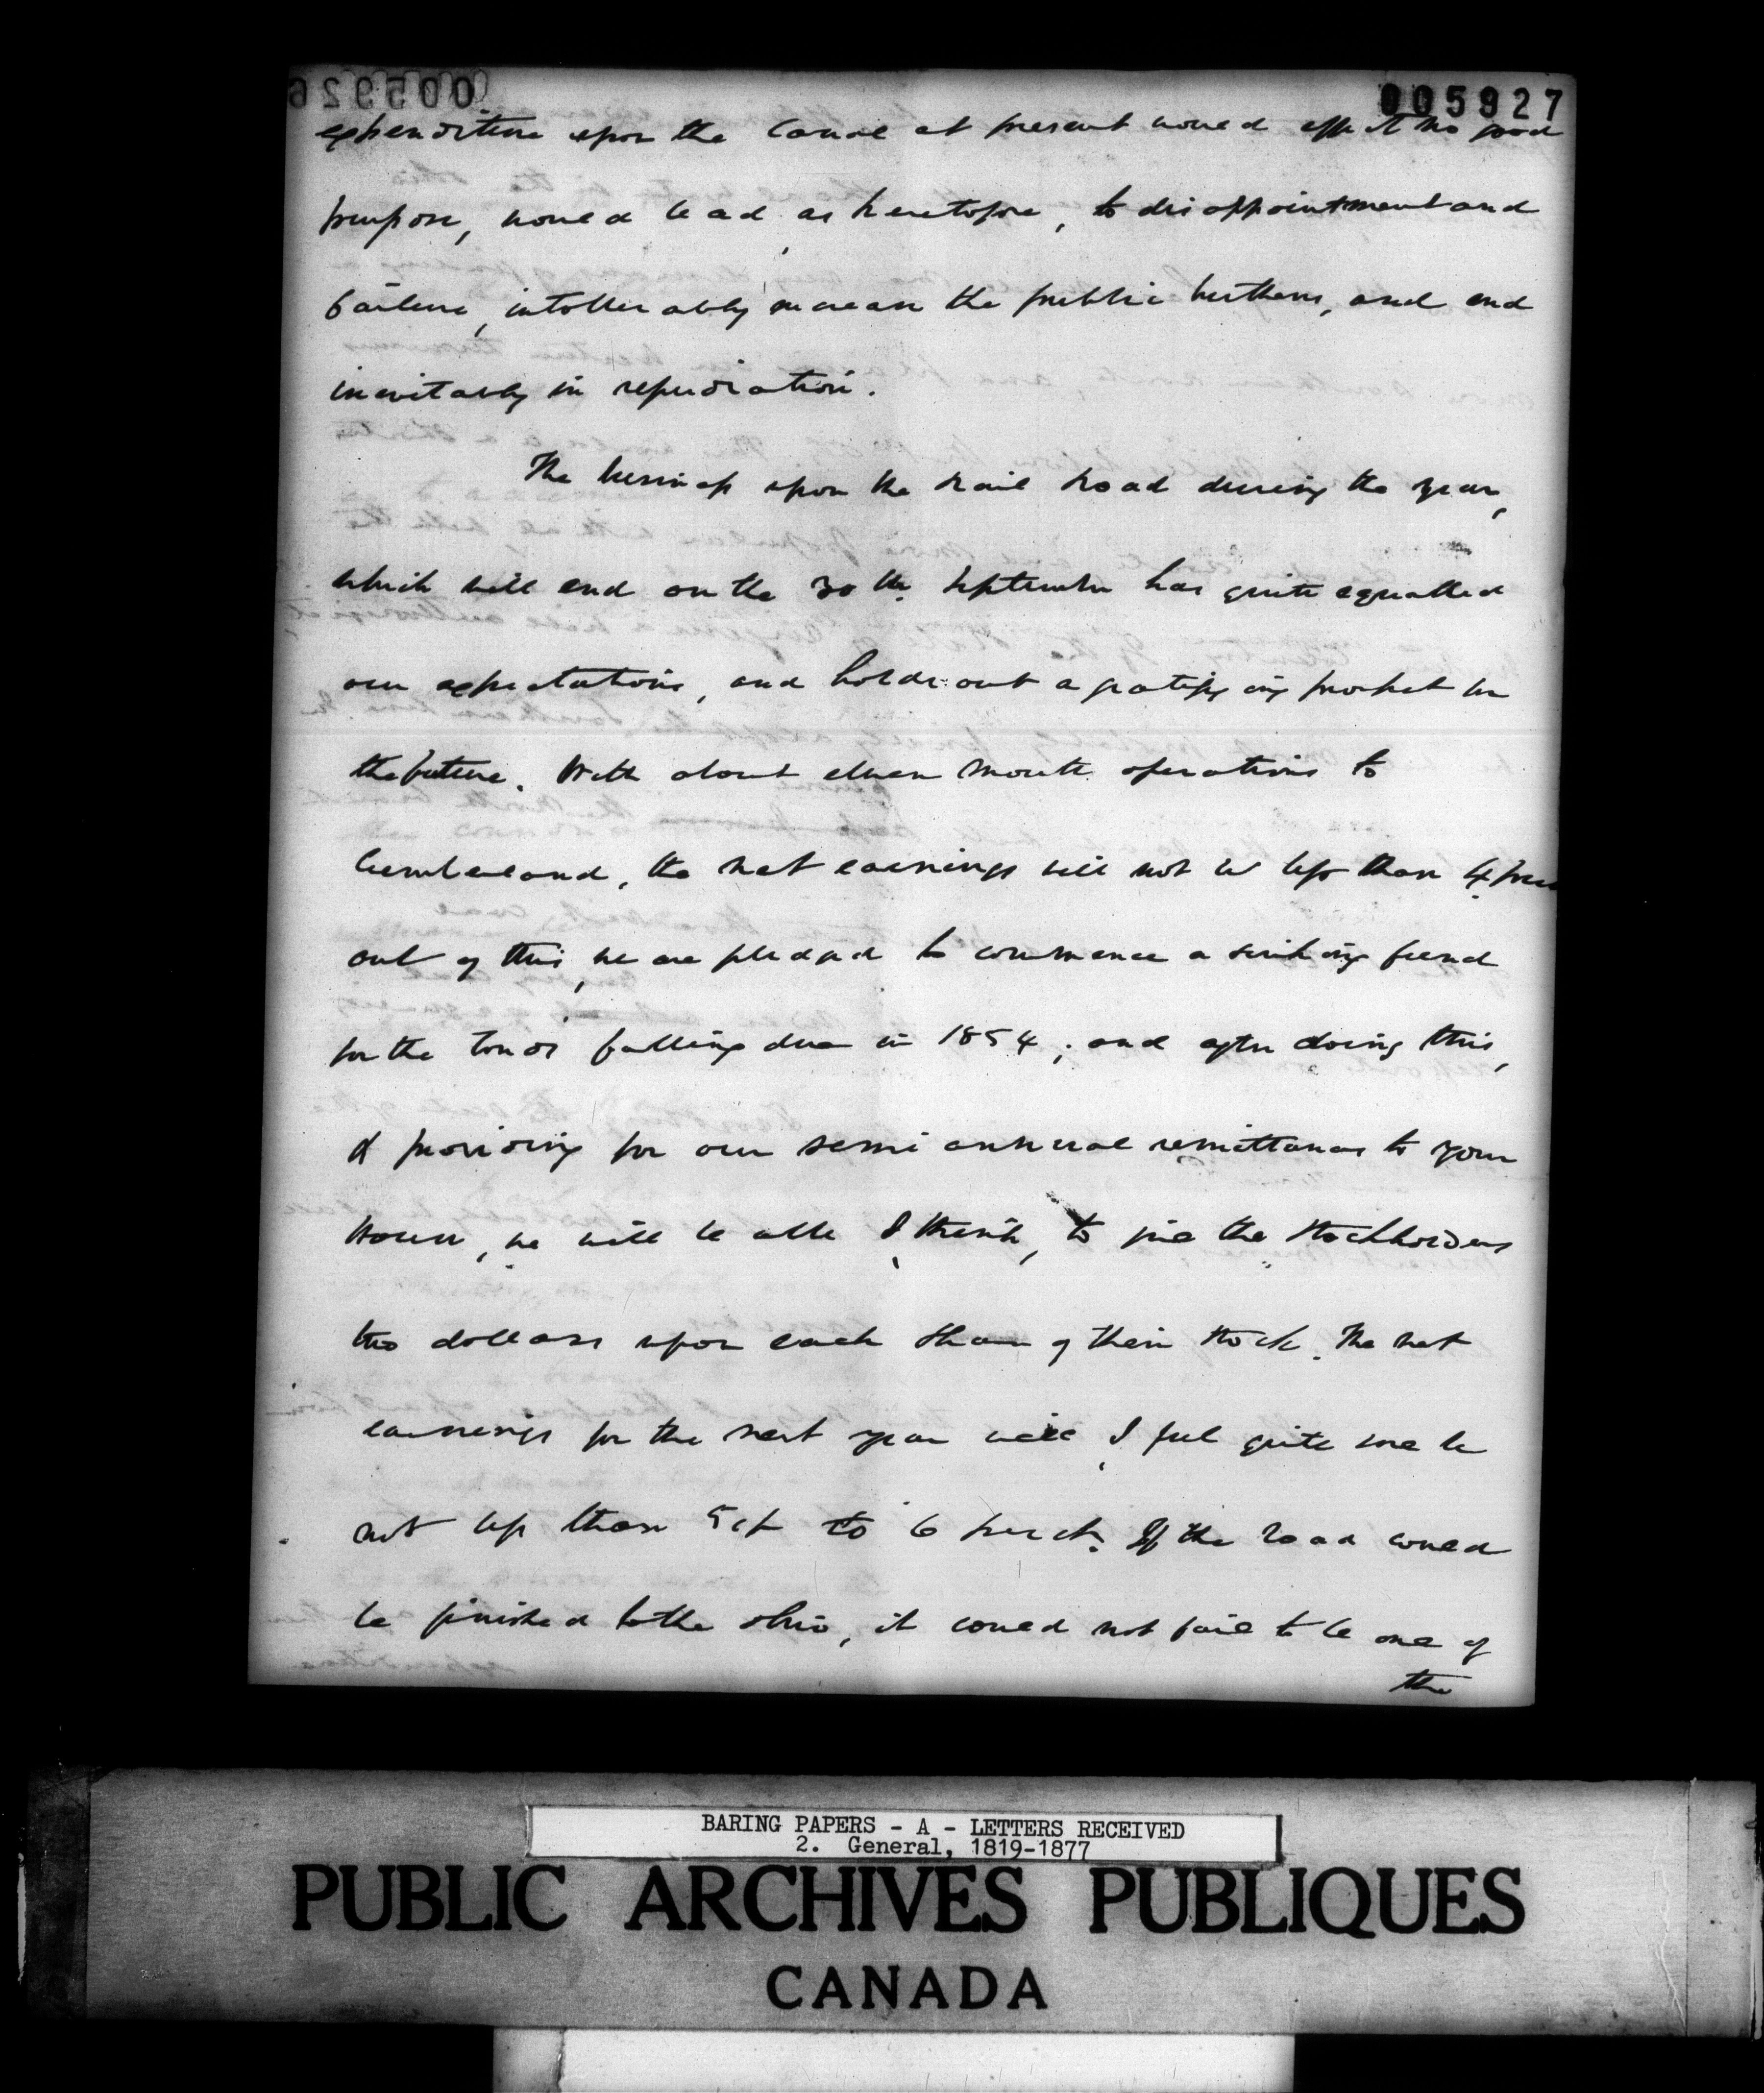 005926
005927
expenditure upon the Canal at present would effect no good
purpose, would lead, as heretofore, to disappointment and
failure, intollerably increase the public burthens, and end
inevitably in repudiation.
The business upon the Rail Road during the year,
which will end on the 30th September has quite equalled
our expectations, and holds out a gratifying prospect in
the future. With about eleven month operations to
Cumberland, the net earnings will not be less than 4 per
out of this, we are pledged to commence a sinking fund
for the bonds falling due in 1854; and after doing this,
& providing for our semi annual remittances to your
House, we will be able, I think, to give the Stockholders
two dollars upon each share of their stock. The net
earnings for the next year will, I feel quite sure be
not less than to 6 per ct. If the Road could
be finished to the Ohio, it could not fail to be one of
the
BARING PAPERS - A - LETTERS RECEIVED
2. General, 1819-1877
PUBLIC ARCHIVES PUBLIQUES
CANADA